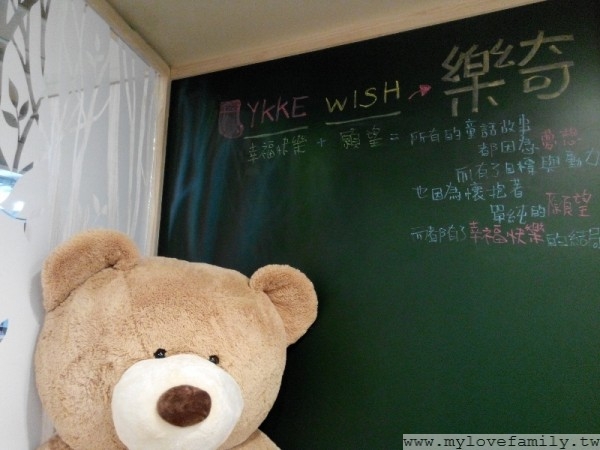 LYKKE WISH → 樂奇
幸福快樂 + 願望 = 所有的童話故事
都因為夢想
而有了目標與動力
也因為懷抱著
單純的願望
而都有了幸福快樂的結局
www.mylovefamily.tw